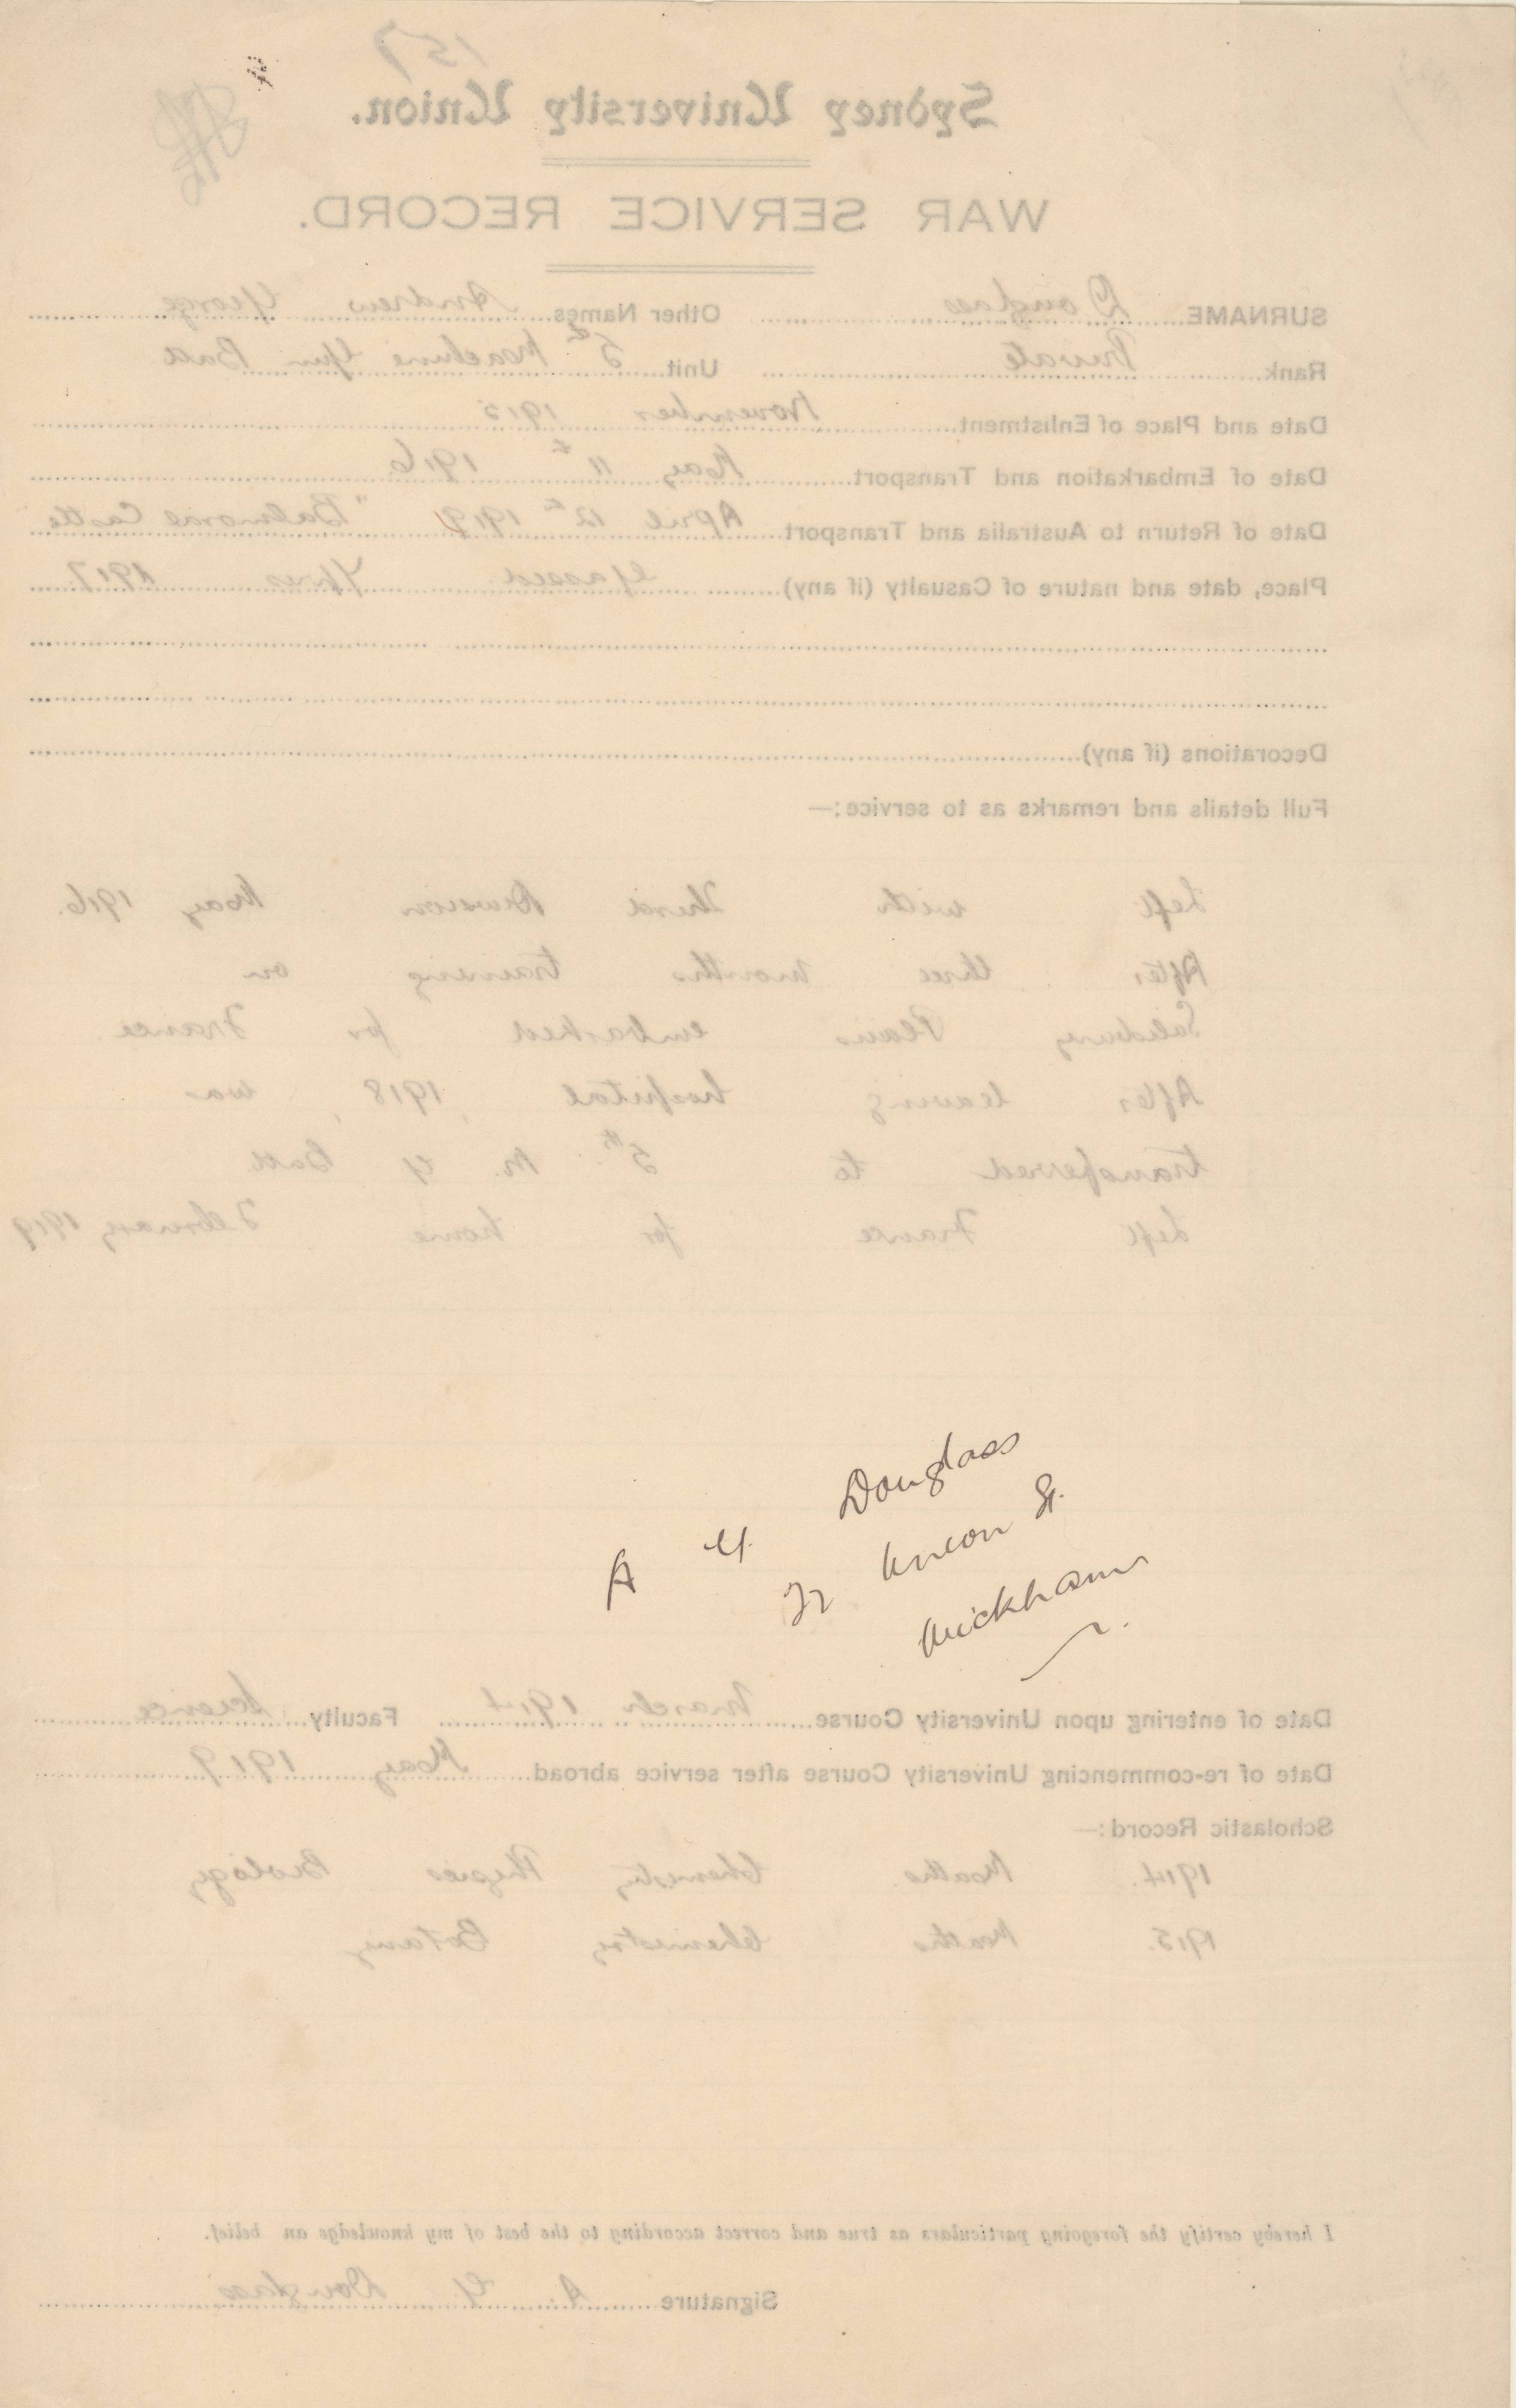 157
Sydney University Union.
WAR SERVICE RECORD.
SURNAME Douglass Other Names Andrew George
Rank Private Unit 5th Machine Gun Batt
Date and Place of Enlistment November 1915
Date of Embarkation and Transport May 11th 1916
Date of Return to Australia and Transport April 12th 1919 "Balmoral Castle"
Place, date and nature of Casualty (if any) Gassed Ypres 1917
Decorations (if any)
Full details and remarks as to service:—
Left with Third Division May 1916.
After three months training on
Salisbury Plains embarked for France
After leaving hospital, 1918, was
transferred to 5th M. G Batt.
Left France for home February 1919
A G. Douglass
Union St.
Wickham
Date of entering upon University Course March 1914 Faculty Science
Date of re-commencing University Course after service abroad May 1919
Scholastic Record:—
1914. Maths. Chemistry Physics Biology
1915. Maths Chemistry Botany
I hereby certify the foregoing particulars as true and correct according to the best of my knowledge an belief.
Signature A. G Douglass